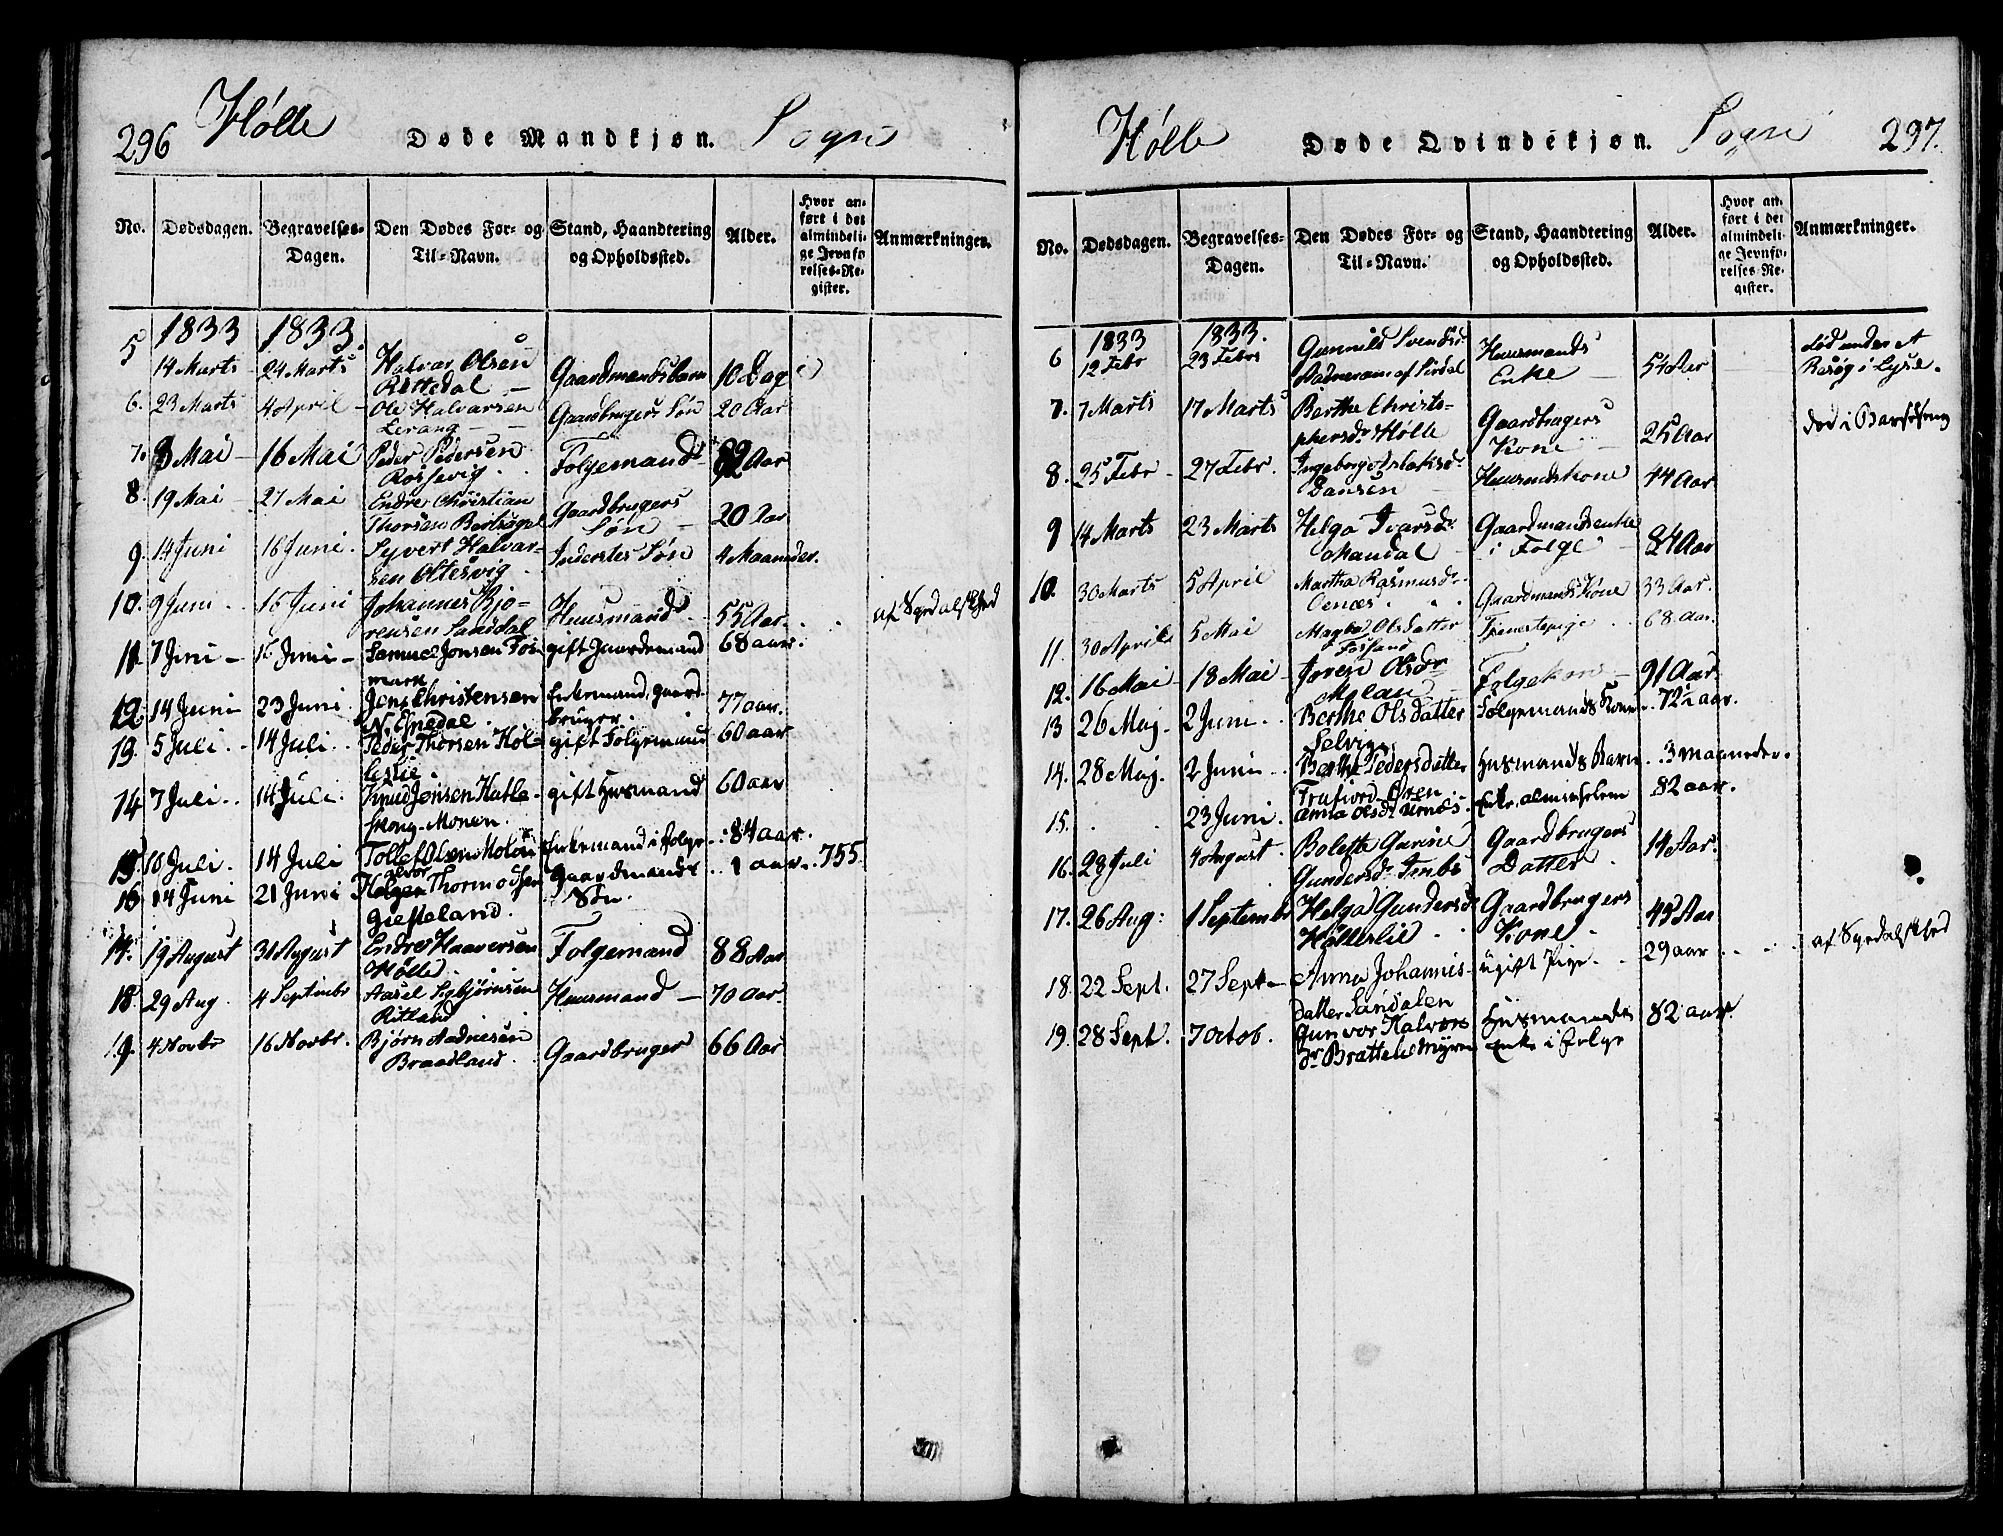 296 Hølle Døde Mandkjøn. Sogn
No. Dødsdagen. Begravelses-Dagen. Den Dødes For- og Til-Navn. Stand, Haandtering og Opholdssted. Alder. Hvor anført i det almindelige Jevnførelses-Register. Anmærkninger.
5 1833 1833.
14 Marts 24 Marts Halvar Olsen Gaardmandsbarn 10 Dag
Rettedal
6. 23 Marts 4 April Ole Halvarsen Gaardbrugers Søn 20 Aar
Lerang
7. 8 Mai 16 Mai Peder Pedersen Folgemand Aar
Rossevig
8. 19 Mai 27 Mai Endre Christian Gaardbrugers
Thorsen Søn 20 Aar
9. 14 Juni 16 Juni. Syvert Halvar- Inderstes Søn 4 Maaneder.
sen Oltesvig
10. 9 Juni 16 Juni Johannes Bjø- Huusmand 55 Aar. af Sogdalsthed
rensen Sandal
11 7 Juni 16 Juni Samuel Jonsen Fos- gift Gaardemand 68 aar.
mark
12 14 Juni 23 Juni Jens Christensen Enkemand, gaard- 77 aar.
N. Espedal. bruger.
13. 5 Juli 14 Juli Peder Thorsen Høl- gift Folgemand 60 aar
leslie.
14 7 Juli 14 Juli. Knud Jonsen Hatle- gift Husmand 60 aar
skong-Monen.
15. 10 Juli. 14 Juli Tollef Olsen Enkemand i folge 84 aar.
16 14 Juni 21 Juni Thormodsen Gaardmands 1 aar. 755.
Gieseland. Søn.
17. 19 August 31 August Endre Haaversen Folgemand 88 Aar
Hølle.
18. 29 Aug. 4 Septembr Aasel Sigbjørnsen Huusmand 70 Aar.
Ritland
19. 4 Novbr 16 Novbr. Bjørn Aadnesen Gaardbruger 66 Aar
Braadland
Hølle Døde Qvindekjøn. Sogn 297.
No. Dødsdagen. Begravelses-Dagen. Den Dødes For- og Til-Navn. Stand, Haandtering og Opholdssted. Alder. Hvor anført i det almindelige Jevnførelses-Register. Anmærkninger.
1833 1833.
6 12 Febr 23 Febr Gunnild Svendsd. Huusmands 54 Aar død under et
af Sirdal Enke Besøg i Lyse.
7. 7 Marts 17 Marts Berthe Christo- Gaardbrugers død i Barselseng
phersdr Hølle Kone 25 Aar
8. 25 Febr 27 Febr. Ingeborg Aslaksdr Huusmdskone 44 Aar
Dansen
9 14 Marts 23 Marts Helga Ivarsdr Gaardmandsenke 84 Aar
Mandal i Folge
10. 30 Marts 5 April Martha Rasmusdr Gaardmands Kone 33 Aar.
Oenæs.
11. 30 Aprile 5 Mai Magla Olsdatter Tjenestepige 68 Aar.
Fossand
12. 16 Mai 18 Mai Joren Olsdr Folgekone 91 Aar
Molan
13 26 Maj. 2 Juni Berthe Olsdatter Folgemands Kone 72½ aar.
Selvigs
14. 28 Maj. 2 Juni Berthe Pedersdatter Husmands Barn 3 maaneder.
Frafjord Øren
15. 23 Juni Anna Olsdr Urnes. Enke. almisselem 82 aar.
16. 28 Juli 4 August. Bolette Gurine Gaardbrugers 14 Aar.
Gundersdr Imbs Datter
17. 26 Aug: 1 Septembr Helga Gundersdr Gaardbrugers 45 Aar
Hølleslie Kone
18. 22 Sept. 27 Sept. Anna Johannis- ugift Pige 29 aar af Sogdalsthed
datter Sandalen
19. 28 Sept. 7 Octob. Gunvor Halvors Husmands 82 aar.
dr Brattelie Myren Enke i folge